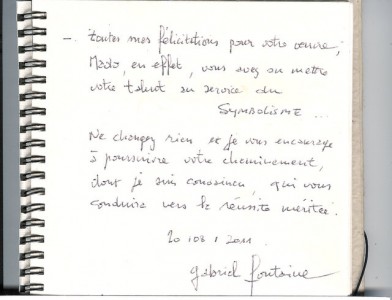 -. toutes mes félicitations pour votre oeuvre ;
Mado, en effet, vous avez su mettre
votre talent au service du
SYMBOLISME ...
Ne changez rien et je vous encourage
à poursuivre votre cheminement,
dont je suis convaincu, qui vous
conduira vers la réussite méritée.
20 / 08 / 2011
Gabriel Fontaine